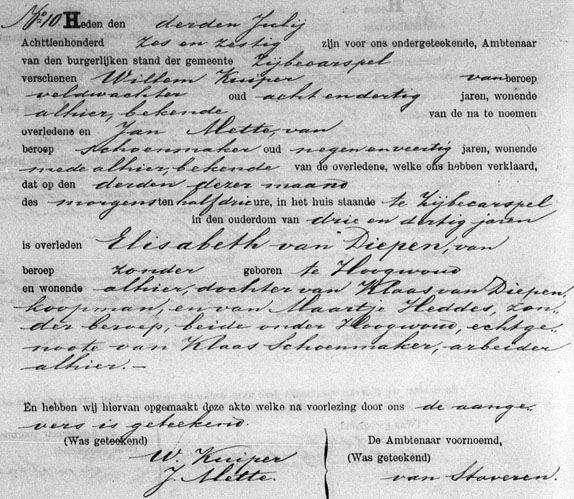 No. 10. Heden den derden Julij
Achttienhonderd zes en zestig zijn voor ons ondergeteekende, Ambtenaar
van den burgerlijken stand der gemeente Zijbecarspel
verschenen Willem Kuiper van beroep
veldwachter oud acht en dertig jaren, wonende
alhier, bekende van de na te noemen
overledene en Jan Mette, van
beroep schoenmaker oud negen en veertig jaren, wonende
mede alhier, bekende van de overledene, welke ons hebben verklaard,
dat op den derden dezer maand
des morgens ten half drie ure, in het huis staande te Zijbecarspel
in den ouderdom van drie en dertig jaren
is overleden Elisabeth van Diepen, van
beroep zonder geboren te Hoogwoud
en wonende alhier, dochter van Klaas van Diepen,
koopman, en van Maartje Heddes, zon-
der beroep, beide onder Hoogwoud, echtge-
noote van Klaas Schoenmaker, arbeider
alhier. —
En hebben wij hiervan opgemaakt deze akte welke na voorlezing door ons de aange-
vers is geteekend.
(Was geteekend) De Ambtenaar voornoemd,
W. Kuiper (Was geteekend)
J. Mette. van Staveren.